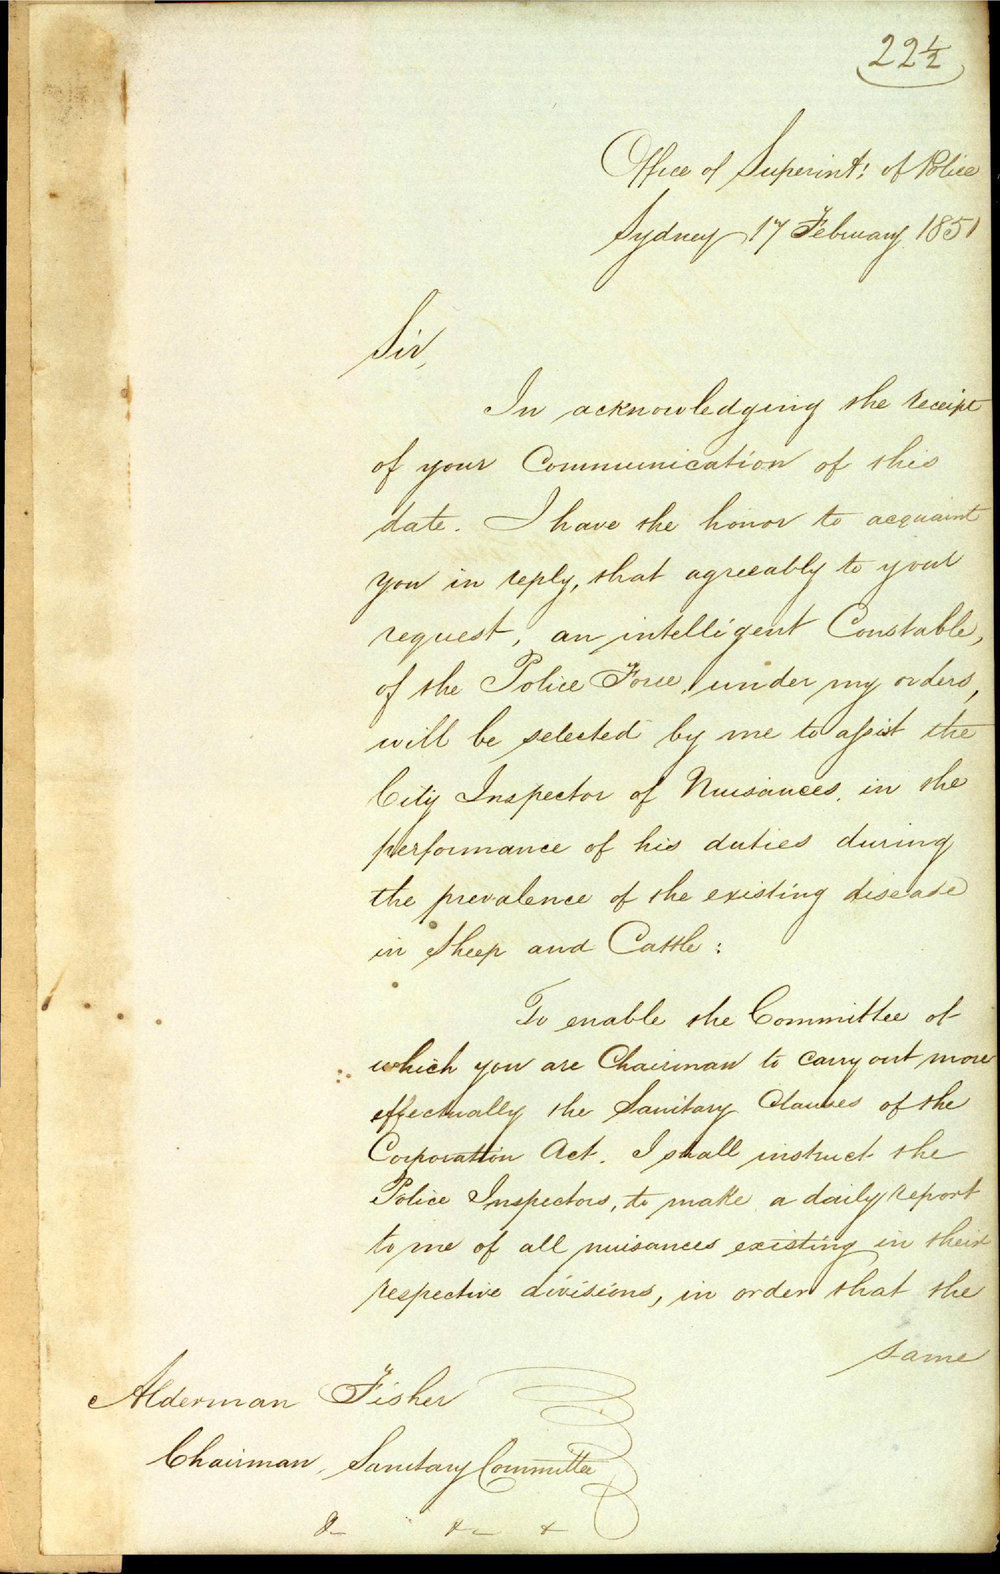 22½
Office of Superint: of Police
Sydney 17 February 1851
Sir,
In acknowledging the receipt
of your Communication of this
date. I have the honor to acquaint
you in reply, that agreeably to your
request, an intelligent Constable,
of the Police Force, under my orders,
will be selected by me to assist the
City Inspector of Nuisances, in the
performance of his duties during
the prevalence of the existing disease
in Sheep and Cattle:
To enable the Committee of
which you are Chairman to carry out more
effectually the Sanitary Clauses of the
Corporation Act. I shall instruct the
Police Inspectors, to make a daily report
to me of all nuisances existing in their
respective divisions, in order that the
same
Alderman Fisher
Chairman, Sanitary Committee
&c &c &c